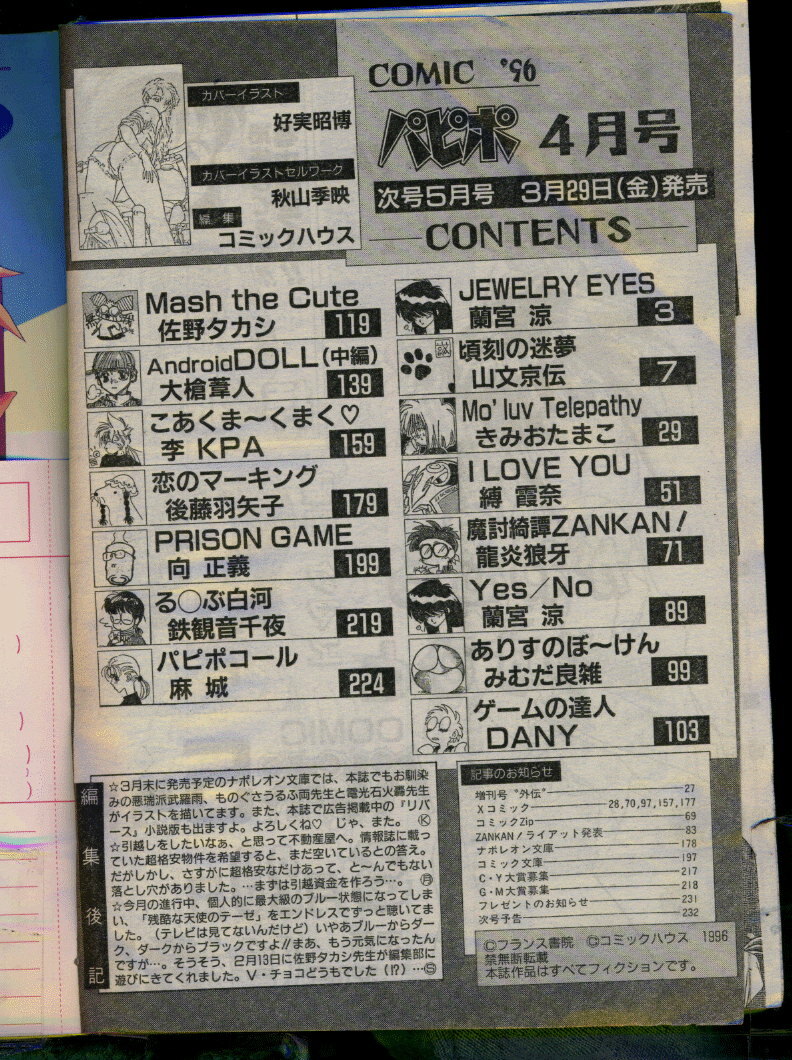 カバーイラスト
好実昭博
カバーイラストセルワーク
秋山季映
編 集
コミックハウス
COMIC '96
パピポ 4月号
次号5月号 3月29日(金)発売
CONTENTS
JEWELRY EYES
蘭宮 涼 3
頃刻の迷夢
山文京伝 7
Mo' luv Telepathy
きみおたまこ 29
I LOVE YOU
縛 霞奈 51
魔討綺譚ZANKAN!
龍炎狼牙 71
Yes/No
蘭宮 涼 89
ありすのぼ〜けん
みむだ良雑 99
ゲームの達人
DANY 103
Mash the Cute
佐野タカシ 119
AndroidDOLL(中編)
大槍葦人 139
こあくま〜くまく♡
李 KPA 159
恋のマーキング
後藤羽矢子 179
PRISON GAME
向 正義 199
る◯ぶ白河
鉄観音千夜 219
パピポコール
麻 城 224
編集後記
☆3月末に発売予定のナポレオン文庫では、本誌でもお馴染
みの悪瑞派武羅雨、ものぐさうるふ両先生と電光石火轟先生
がイラストを描いてます。また、本誌で広告掲載中の『リバ
ース』小説版も出ますよ。よろしくね♡ じゃ、また。 Ⓚ
☆引越しをしたいなぁ、と思って不動産屋へ。情報誌に載っ
ていた超格安物件を希望すると、まだ空いているとの答え。
だがしかし、さすがに超格安なだけあって、と〜んでもない
落とし穴がありました。…まずは引越資金を作ろう…。 ㊊
☆今月の進行中、個人的に最大級のブルー状態になってしま
い、「残酷な天使のテーゼ」をエンドレスでずっと聴いてま
した。(テレビは見てないんだけど)いやあブルーからダー
ク、ダークからブラックですよ//まあ、もう元気になったん
ですが…。そうそう、2月13日に佐野タカシ先生が編集部に
遊びにきてくれました。V・チョコどうもでした(!?)…Ⓢ
記事のお知らせ
増刊号“外伝” 27
Xコミック 28,70,97,157,177
コミックZip 69
ZANKAN!ライアット発表 83
ナポレオン文庫 178
コミック文庫 197
C・Y大賞募集 217
G・M大賞募集 218
プレゼントのお知らせ 231
次号予告 232
©フランス書院 ©コミックハウス 1996
禁無断転載
本誌作品はすべてフィクションです。